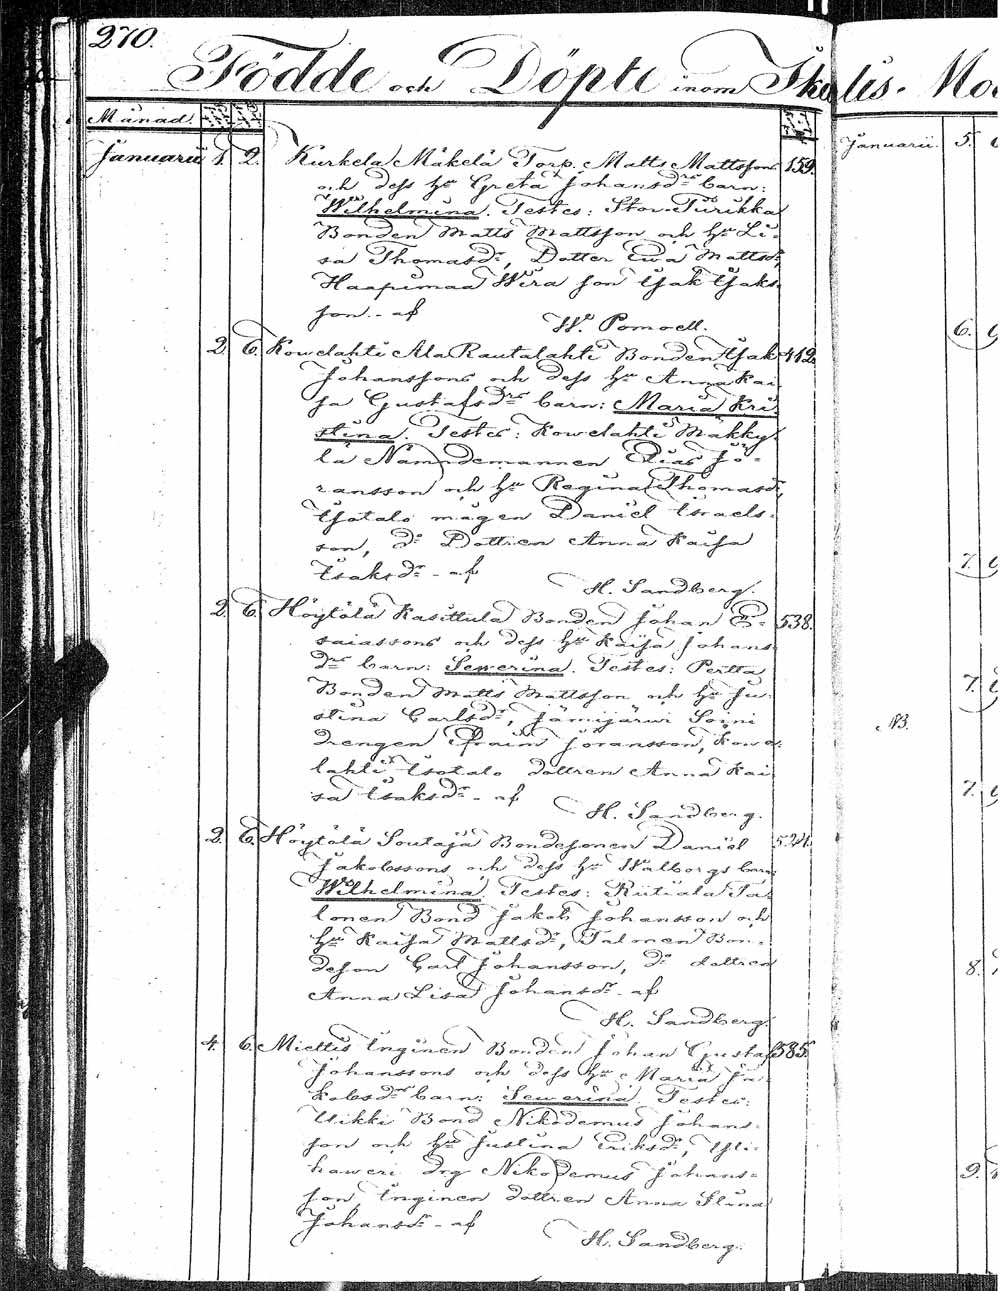 270.
Födde och Döpte inom Ikalis. Mo
Månad.
Januarii 1. 2. Kurkela Mäkelä Torp. Matts Mattssons 159.
och dess hu Greta Johansdrs barn:
Wilhelmina. Testes: Stor Türikka
Bonden Matts Mattsson och hu Li=
sa Thomasdr, Dotter Ewa Mattsdr,
Haapimaa Wira son Isak Isaks
son. - af
W. Pomoell.
2. 6. Kowelahti Ala Rautalahti Bonden Isak 412.
Johanssons och dess hu Anna Kai
sa Gustafsdrs barn: Maria Kri
stina. Testes: Kowelahti Mäkky
lä Nämndemannen Elias Jö=
ransson och hu Regina Thomasdr,
Isotalo mågen Daniel Israels=
son, do Dottren Anna Kaisa
Isaksdr - af
H. Sandberg.
2. 6. Höytölä Kasittula Bonden Johan E= 538.
saiassons och dess hu Kaisa Johans
drs barn: Sewerina. Testes: Pertta
Bonden Matts Mattsson och hu Ju=
stina Carlsdr, Jämijärwi Soini
drengen Efraim Jöransson, Kowe=
lahti Isotalo dottren Anna Kai
sa Isaksdr - af
H. Sandberg.
2. 6. Höytölä Soutaja Bondesonen Daniel 524.
Jakobssons och dess hu Walborgs barn:
Wilhelmina. Testes: Riitiala Ta
lonen Bond Jakob Johansson och
hu Kaisa Mattsdr, Talonen Bon=
deson Carl Johansson, do dottren
Anna Lisa Johansdr - af
H. Sandberg.
4. 6. Miettis Inginen Bonden Johan Gustaf 585.
Johanssons och dess hu Maria Ja=
kobsdrs barn: Sewerina. Testes:
Uikki Bond Nikodemus Johans=
son och hu Justina Eriksdr, Yli=
haweri drg Nikodemus Johans=
son, Inginen dottren Anna Stina
Johansdr - af
H. Sandberg.
Januarii. 5.
6.
7.
7.
NB.
7.
8.
9.